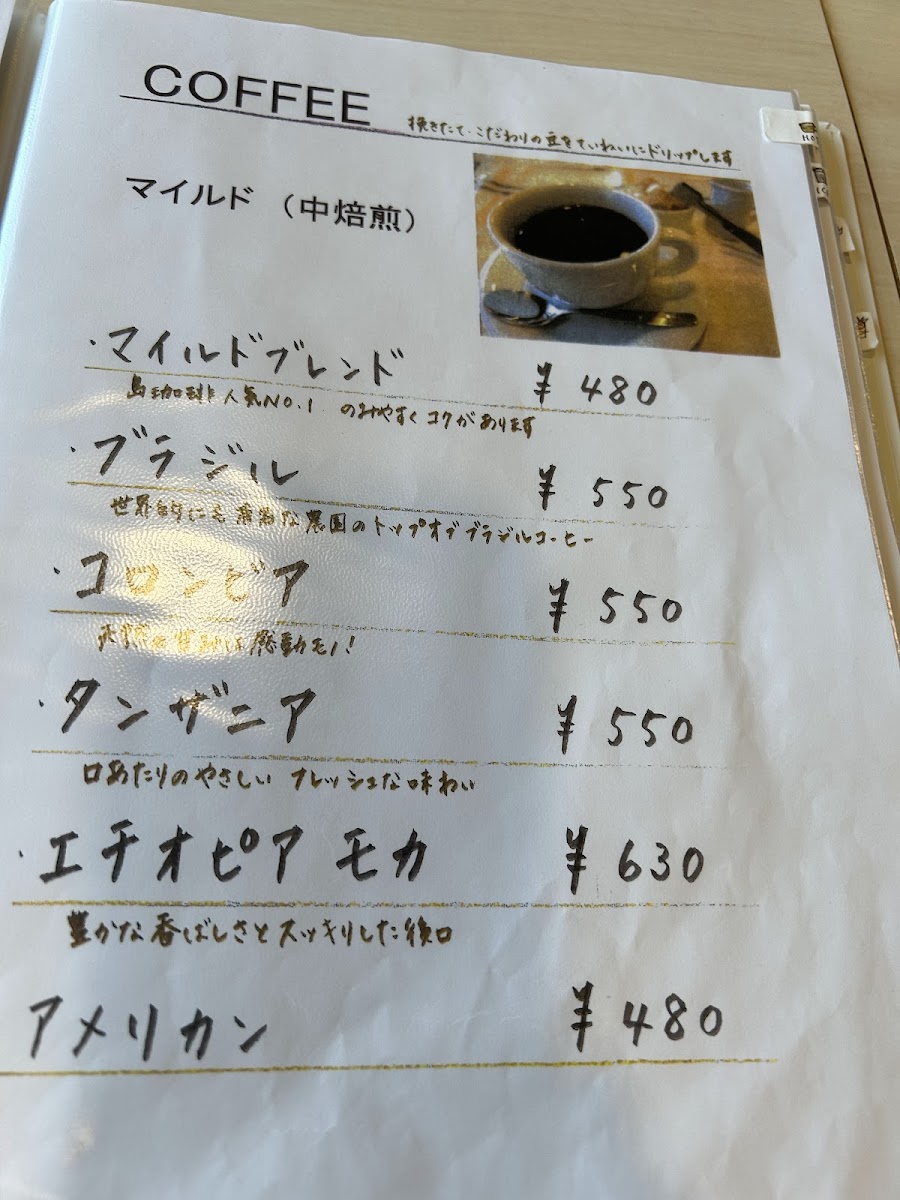 COFFEE
挽きたて・こだわりの豆をていねいにドリップします
マイルド （中焙煎）
・マイルドブレンド ¥480
島珈琲人気NO.1 のみやすくコクがあります
・ブラジル ¥550
世界的にも有名な農園のトップオブブラジルコーヒー
・コロンビア ¥550
は感動モノ!
・タンザニア ¥550
口あたりのやさしい フレッシュな味わい
・エチオピア モカ ¥630
豊かな香ばしさとスッキリした後口
アメリカン ¥480